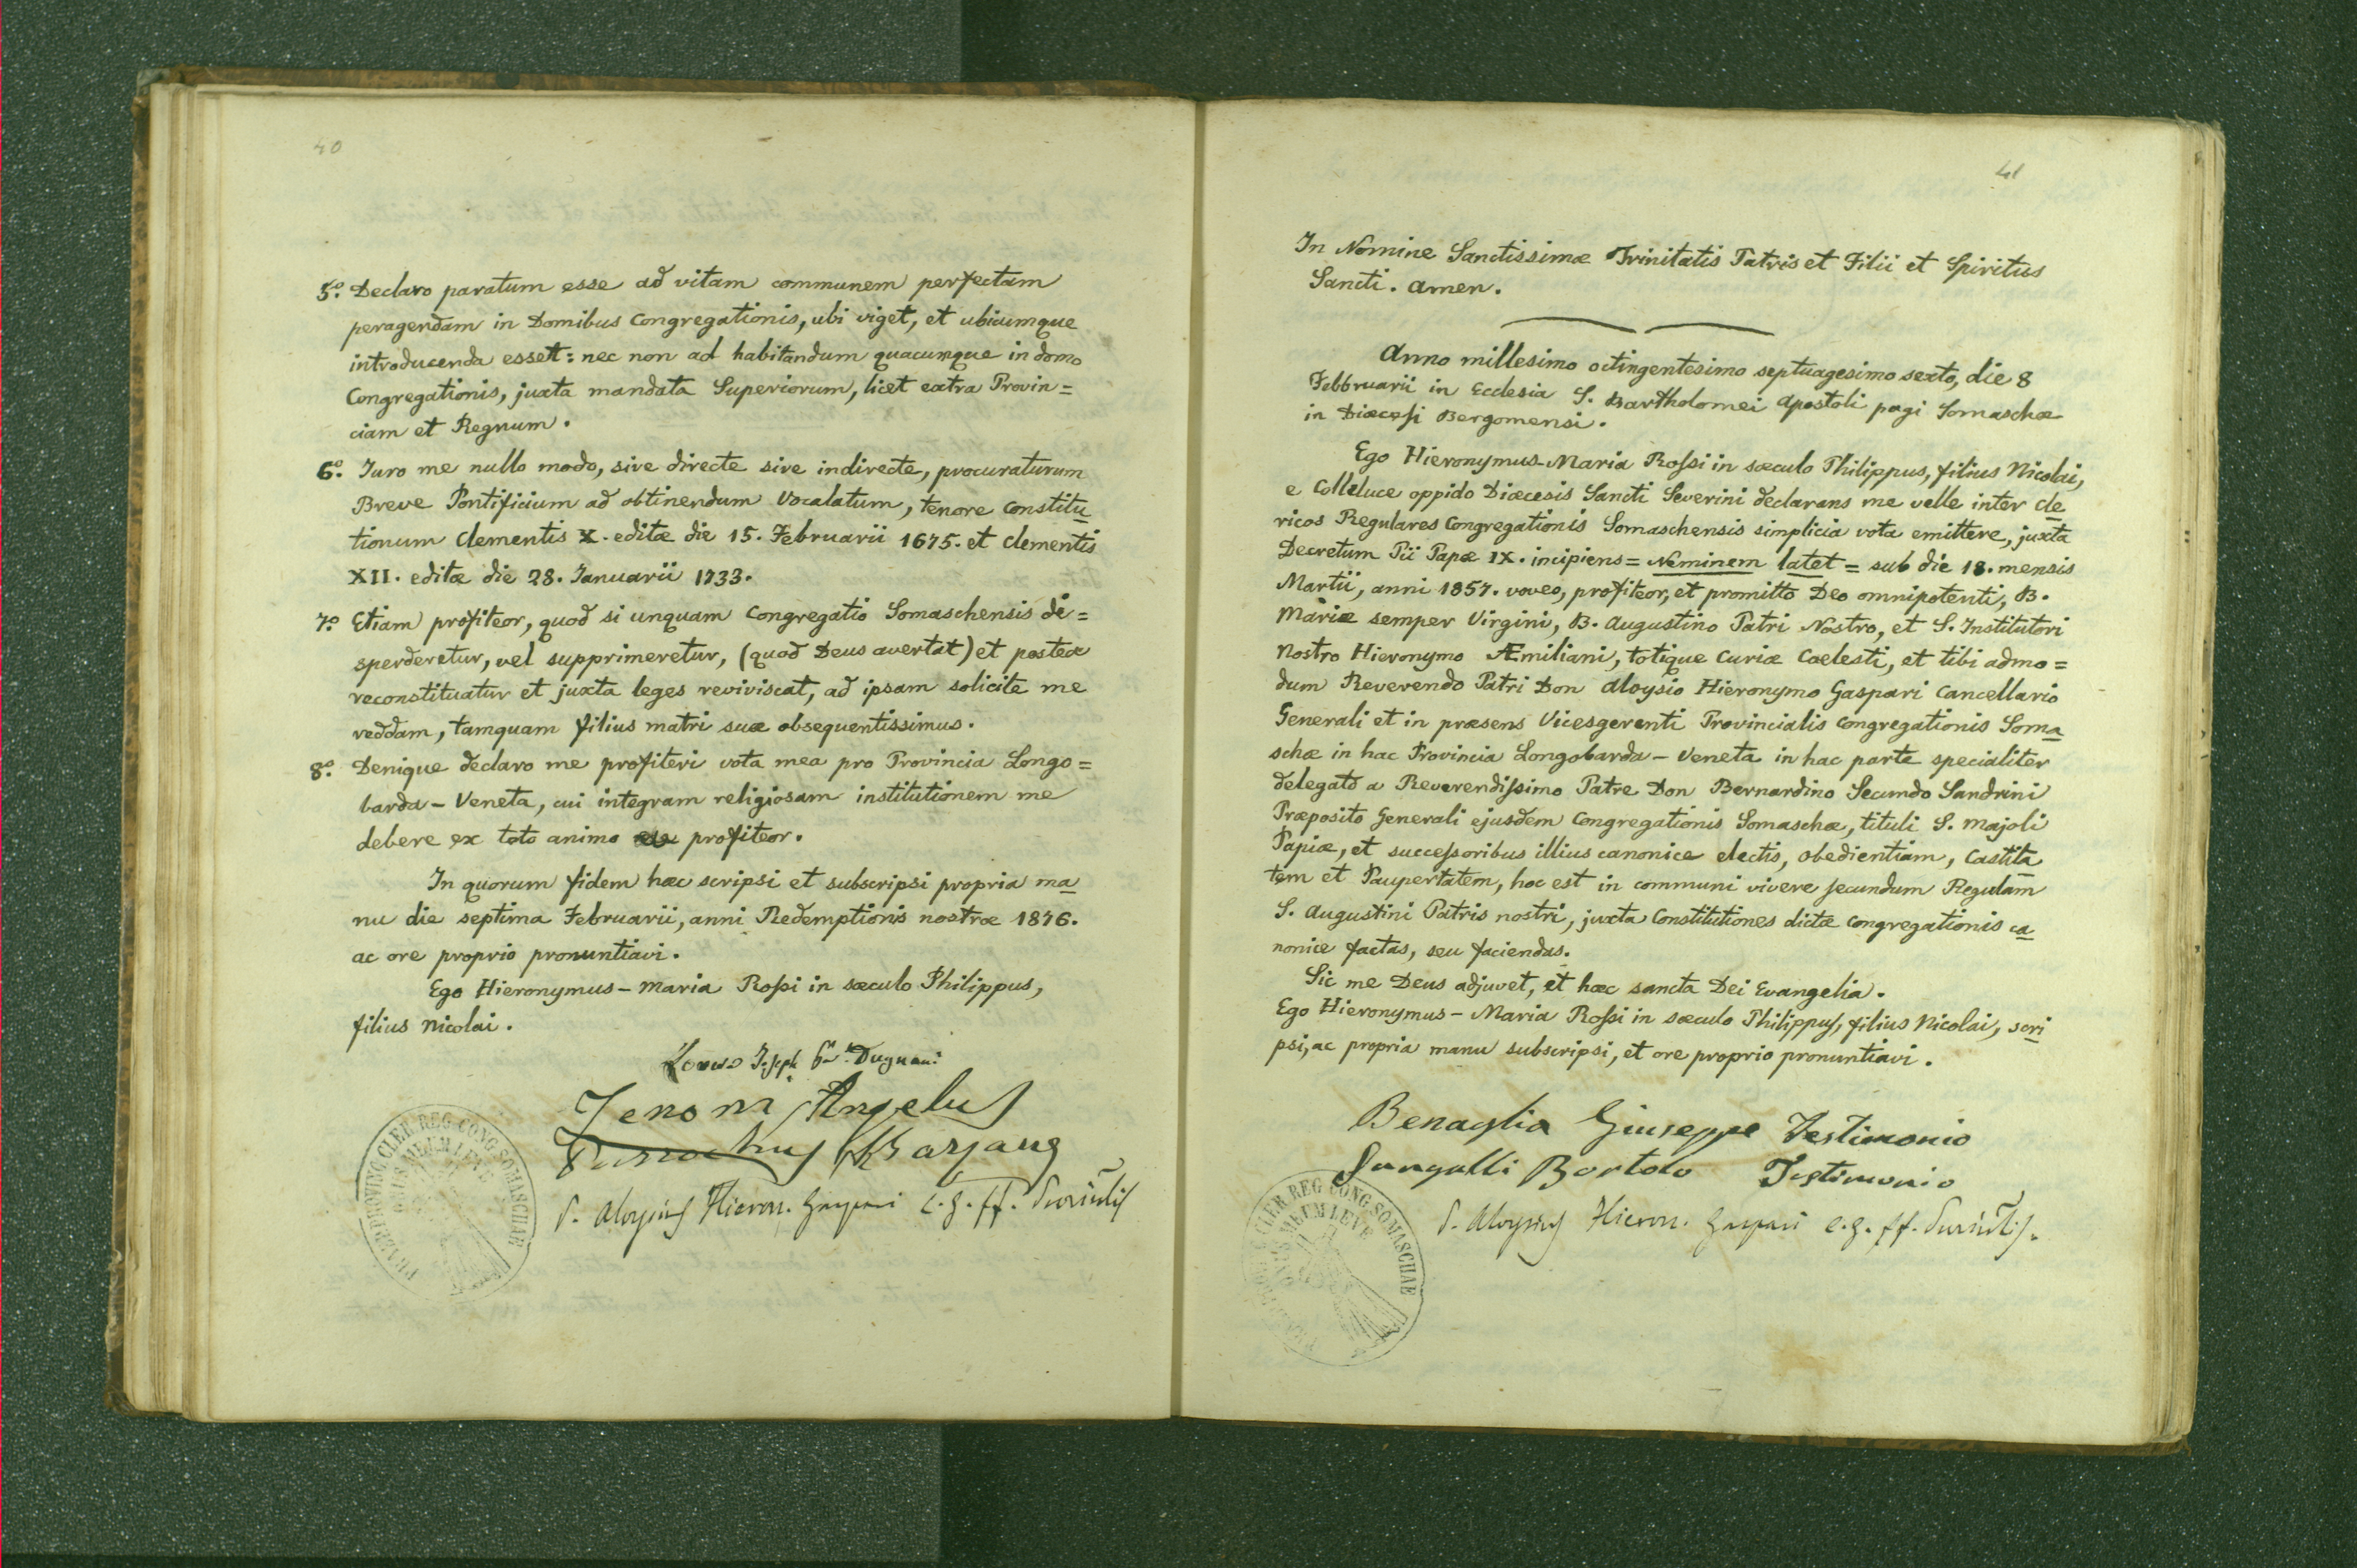 40
5.º Declaro paratum esse ad vitam communem perfectam
peragendam in Domibus Congregationis, ubi viget, et ubicumque
introducenda esset: nec non ad habitandum quacumque in domo
Congregationis, juxta mandata Superiorum, licet extra Provin=
ciam et Regnum.
6.º Iuro me nullo modo, sive directe sive indirecte, procuraturum
Breve Pontificium ad obtinendum Vocalatum, tenore Constitu
tionum Clementis X. editæ die 15. Februarii 1675. et Clementis
XII. editæ die 28. Januarii 1733.
7.º Etiam profiteor, quod si unquam Congregatio Somaschensis di=
sperderetur, vel supprimeretur, (quod Deus avertat) et postea
reconstituatur et juxta leges reviviscat, ad ipsam solicite me
reddam, tamquam filius matri suæ obsequentissimus.
8.º Denique declaro me profiteri vota mea pro Provincia Longo=
barda - Veneta, cui integram religiosam institutionem me
debere ex toto animo profiteor.
In quorum fidem hæc scripsi et subscripsi propria ma
nu die septima Februarii, anni Redemptionis nostræ 1876.
ac ore proprio pronuntiavi.
Ego Hieronymus - Maria Rossi in sæculo Philippus,
filius Nicolai.
Joseph Dugnani
Angelus
P. Aloysius Hieron. Gaspari C. G. ff.
PROVINC CLER REG CONG SOMASCHAE
ONUS MEUM LEVE
41
In Nomine Sanctissimæ Trinitatis Patris et Filii et Spiritus
Sancti. Amen.
Anno millesimo octingentesimo septuagesimo sexto, die 8
Febbruarii in Ecclesia S. Bartholomei Apostoli pagi Somaschæ
in Diæcesi Bergomensi.
Ego Hieronymus-Maria Rossi in sæculo Philippus, filius Nicolai,
e Colleluce oppido Diæcesis Sancti Severini declarans me velle inter Cle
ricos Regulares Congregationis Somaschensis simplicia vota emittere, juxta
Decretum Pii Papæ IX. incipiens = Neminem latet = sub die 18. mensis
Martii, anni 1857. voveo, profiteor, et promitto Deo omnipotenti, B.
Mariæ semper Virgini, B. Augustino Patri Nostro, et S. Institutori
Nostro Hieronymo Æmiliani, totique Curiæ Cælesti, et tibi admo=
dum Reverendo Patri Don Aloysio Hieronymo Gaspari Cancellario
Generali et in præsens Vicesgerenti Provincialis Congregationis Soma
schæ in hac Provincia Longobarda - Veneta in hac parte specialiter
delegato a Reverendissimo Patre Don Bernardino Secundo Sandrini
Præposito Generali ejusdem Congregationis Somaschæ, tituli S. Majoli
Papiæ, et successoribus illius canonice electis, obedientiam, Castita
tem et Paupertatem, hoc est in communi vivere secundum Regulam
S. Augustini Patris nostri, juxta Constitutiones dictæ Congregationis ca
nonice factas, seu faciendas.
Sic me Deus adjuvet, et hæc sancta Dei Evangelia.
Ego Hieronymus - Maria Rossi in sæculo Philippus, filius Nicolai, scri
psi, ac propria manu subscripsi, et ore proprio pronuntiavi.
Benaglia Giuseppe Testimonio
Sangalli Bortolo Testimonio
P. Aloysius Hieron. Gaspari C. G. ff.
CLER REG CONG SOMASCHAE
ONUS MEUM LEVE